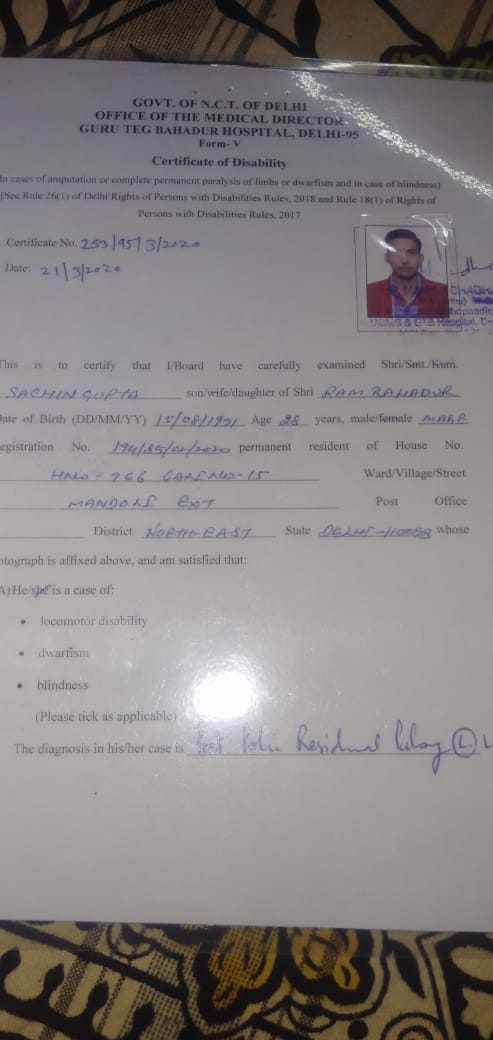 GOVT. OF N.C.T. OF DELHI
OFFICE OF THE MEDICAL DIRECTOR
GURU TEG BAHADUR HOSPITAL, DELHI-95
Form- V
Certificate of Disability
In cases of amputation or complete permanent paralysis of limbs or dwarfism and in case of blindness)
(See Rule 26(1) of Delhi Rights of Persons with Disabilities Rules, 2018 and Rule 18(1) of Rights of
Persons with Disabilities Rules, 2017
Certificate No. 253/95/3/2020
Date: 21/3/2020
CHADHA
Hospital,
This is to certify that I/Board have carefully examined Shri/Smt./Kum.
SACHIN GUPTA son/wife/daughter of Shri RAM BAHADUR
Date of Birth (DD/MM/YY) 15/08/1991 Age 28 years, male/female MALE
egistration No. permanent resident of House No.
HNO - 966 GALI NO-15 Ward/Village/Street
MANDOLI EXT Post Office
District NORTH-EAST State DELHI-110093 whose
otograph is affixed above, and am satisfied that:
A) He/she is a case of:
• locomotor disability
• dwarfism
• blindness
(Please tick as applicable)
The diagnosis in his/her case is Post Polio Residual Palsy (L) L